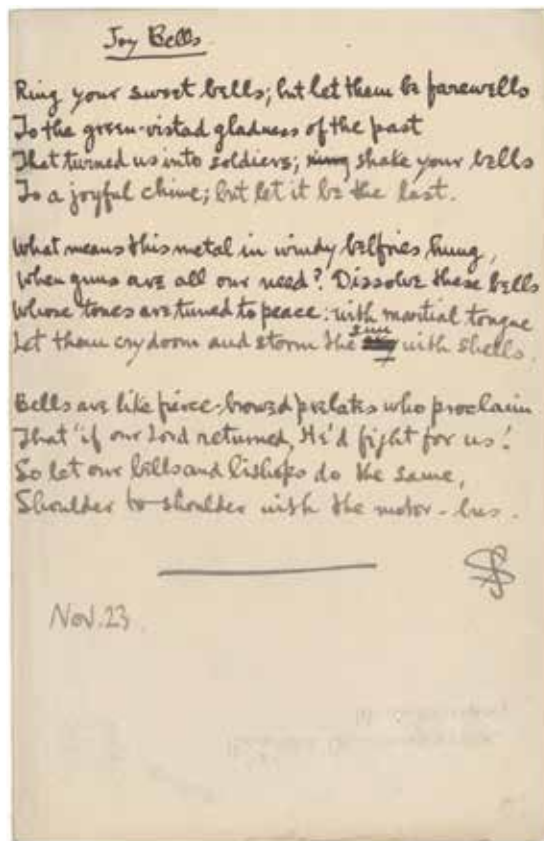 Joy Bells
Ring your sweet bells; but let them be farewells
To the green-vistad gladness of the past
That turned us into soldiers; shake your bells
To a joyful chime; but let it be the last.
What means this metal in windy belfries hung,
When guns are all our need? Dissolve these bells
Whose tones are tuned to peace: with martial tongue
Let them cry doom and storm the sun with shells.
Bells are like fierce-browed prelates who proclaim
That "if our Lord returned, He'd fight for us!
So let our bells and bishops do the same,
Shoulder to shoulder with the motor-bus.
SS
Nov. 23.